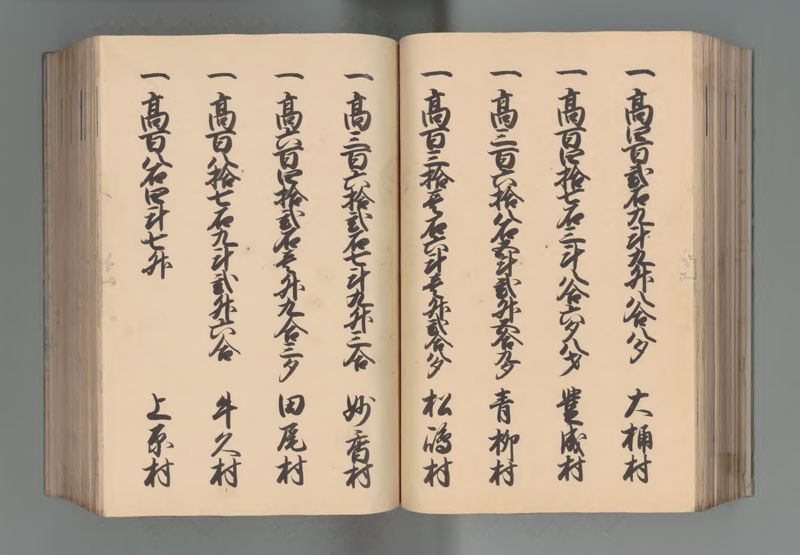 一高四百弐石九斗九升八合八夕 大桶村
一高百四拾七石三斗八合六夕八才 豊成村
一高三百六拾八石五斗弐升五合九夕 青柳村
一高百三拾壱石六斗壱升弐合八夕 松嶋村
一高三百六拾弐石七斗九升三合 妙香村
一高六百四拾弐石壱升九合三夕 田尾村
一高百八拾七石九斗弐升六合 牛久村
一高百八石四斗七升 上原村